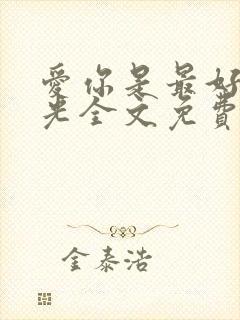 愛你是最好
光全文免費
金泰浩